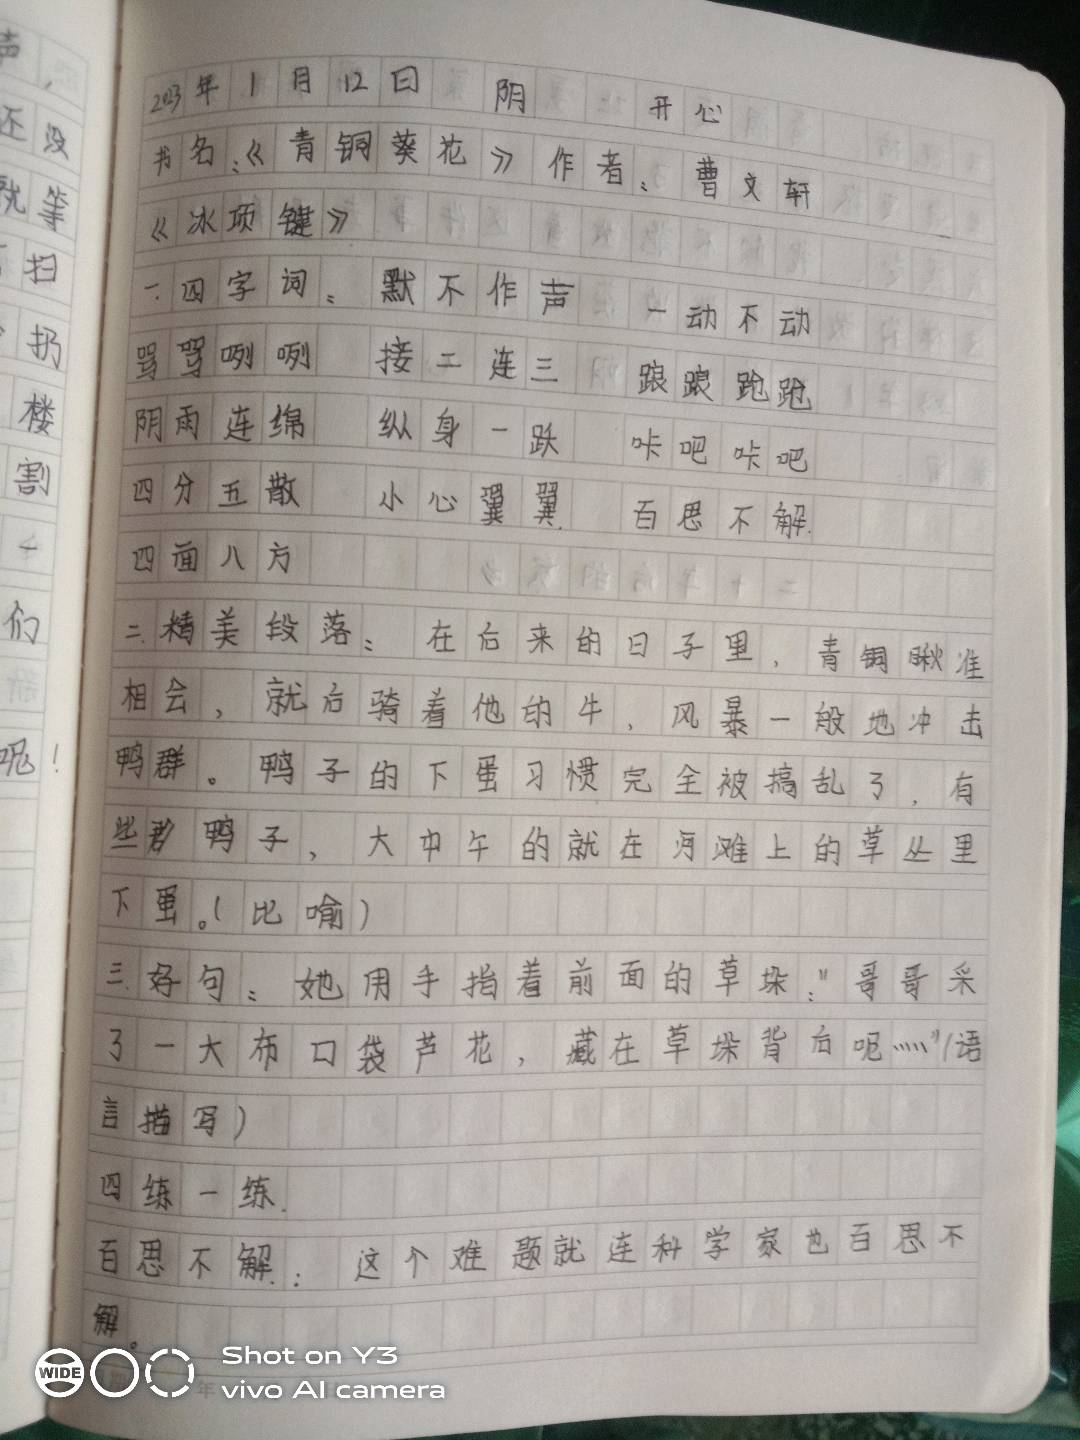 声，
还没
就等
扫
扔
楼
割
们
呢！
2023年1月12日 阴 开心
书名：《青铜葵花》作者：曹文轩
《冰项键》
一.四字词：默不作声 一动不动
骂骂咧咧 接二连三 踉踉跄跄
阴雨连绵 纵身一跃 咔吧咔吧
四分五散 小心翼翼 百思不解.
四面八方
二.精美段落：在后来的日子里，青铜瞅准
相会，就后骑着他的牛，风暴一般地冲击
鸭群。鸭子的下蛋习惯完全被搞乱了，有
些 鸭子，大中午的就在河滩上的草丛里
下蛋。(比喻)
三.好句：她用手指着前面的草垛："哥哥采
了一大布口袋芦花，藏在草垛背后呢……"(语
言描写)
四练一练.
百思不解.：这个难题就连科学家也百思不
解。
WIDE
Shot on Y3
vivo AI camera
年